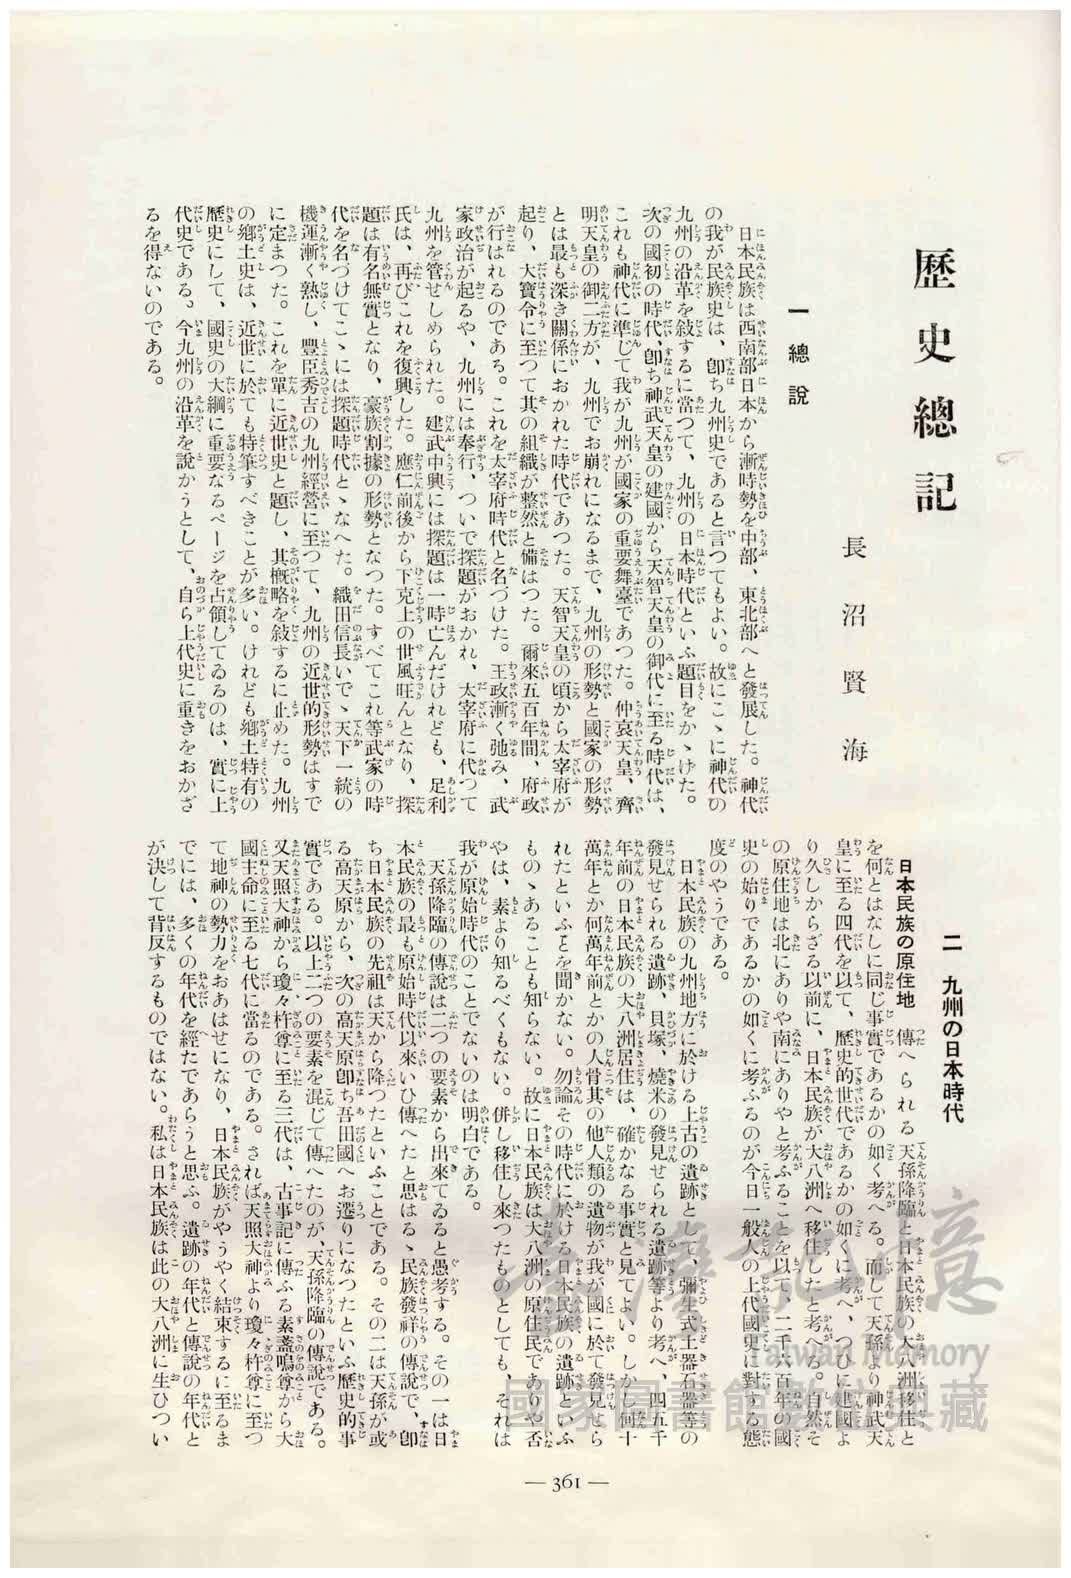 歷史總記
長沼賢海
一 總說
日本民族は西南部日本から漸時勢を中部、東北部へと發展した。神代
の我が民族史は、卽ち九州史であると言つてもよい。故にこゝに神代の
九州の沿革を敍するに當つて、九州の日本時代といふ題目をかゝげた。
次の國初の時代、卽ち神武天皇の建國から天智天皇の御代に至る時代は、
これも神代に準じて我が九州が國家の重要舞臺であつた。仲哀天皇、齊
明天皇の御二方が、九州でお崩れになるまで、九州の形勢と國家の形勢
とは最も深き關係におかれた時代であつた。天智天皇の頃から太宰府が
起り、大寶令に至つて其の組織が整然と備はつた。爾來五百年間、府政
が行はれるのである。これを太宰府時代と名づけた。王政漸く弛み、武
家政治が起るや、九州には奉行、ついで探題がおかれ、太宰府に代つて
九州を管せしめられた。建武中興には探題は一時亡んだけれども、足利
氏は、再びこれを復興した。應仁前後から下克上の世風旺んとなり、探
題は有名無實となり、豪族割據の形勢となつた。すべてこれ等武家の時
代を名づけてこゝには探題時代とゝなへた。織田信長いでゝ天下一統の
機運漸く熟し、豐臣秀吉の九州經營に至つて、九州の近世的形勢はすで
に定まつた。これを單に近世史と題し、其槪略を敍するに止めた。九州
の鄕土史は、近世に於ても特筆すべきことが多い。けれども鄕土特有の
歷史にして、國史の大綱に重要なるページを占領してゐるのは、實に上
代史である。今九州の沿革を說かうとして、自ら上代史に重きをおかざ
るを得ないのである。
二 九州の日本時代
日本民族の原住地 傳へられる天孫降臨と日本民族の大八洲移住と
を何とはなしに同じ事實であるかの如く考へる。而して天孫より神武天
皇に至る四代を以て、歷史的世代であるかの如くに考へ、つひに建國よ
り久しからざる以前に、日本民族が大八洲へ移住したと考へる。自然そ
の原住地は北にありや南にありやと考ふることを以て、二千六百年の國
史の始りであるかの如くに考ふるのが今日一般人の上代國史に對する態
度のやうである。
日本民族の九州地方に於ける上古の遺跡として、彌生式土器石器等の
發見せられる遺跡、貝塚、燒米の發見せられる遺跡等より考へ、四五千
年前の日本民族の大八洲居住は、確かなる事實と見てよい。しかし何十
萬年とか何萬年前とかの人骨其の他人類の遺物が我が國に於て發見せら
れたといふことを聞かない。勿論その時代に於ける日本民族の遺跡といふ
ものゝあることも知らない。故に日本民族は大八洲の原住民でありや否
やは、素より知るべくもない。併し移住し來つたものとしても、それは
我が原始時代のことでないのは明白である。
天孫降臨の傳說は二つの要素から出來てゐると愚考する。その一は日
本民族の最も原始時代以來いひ傳へたと思はるゝ民族發祥の傳說で、卽
ち日本民族の先祖は天から降つたといふことである。その二は天孫が或
る高天原から、次の高天原卽ち吾田國へお遷りになつたといふ歷史的事
實である。以上二つの要素を混じて傳へたのが、天孫降臨の傳說である。
又天照大神から瓊々杵尊に至る三代は、古事記に傳ふる素盞嗚尊から大
國主命に至る七代に當るのである。されば天照大神より瓊々杵尊に至つ
て地神の勢力をおあはせになり、日本民族がやうやく結束するに至るま
でには、多くの年代を經たであらうと思ふ。遺跡の年代と傳說の年代と
が決して背反するものではない。私は日本民族は此の大八洲に生ひつい
— 361 —
臺灣記憶
Taiwan Memory
國家圖書館數位典藏